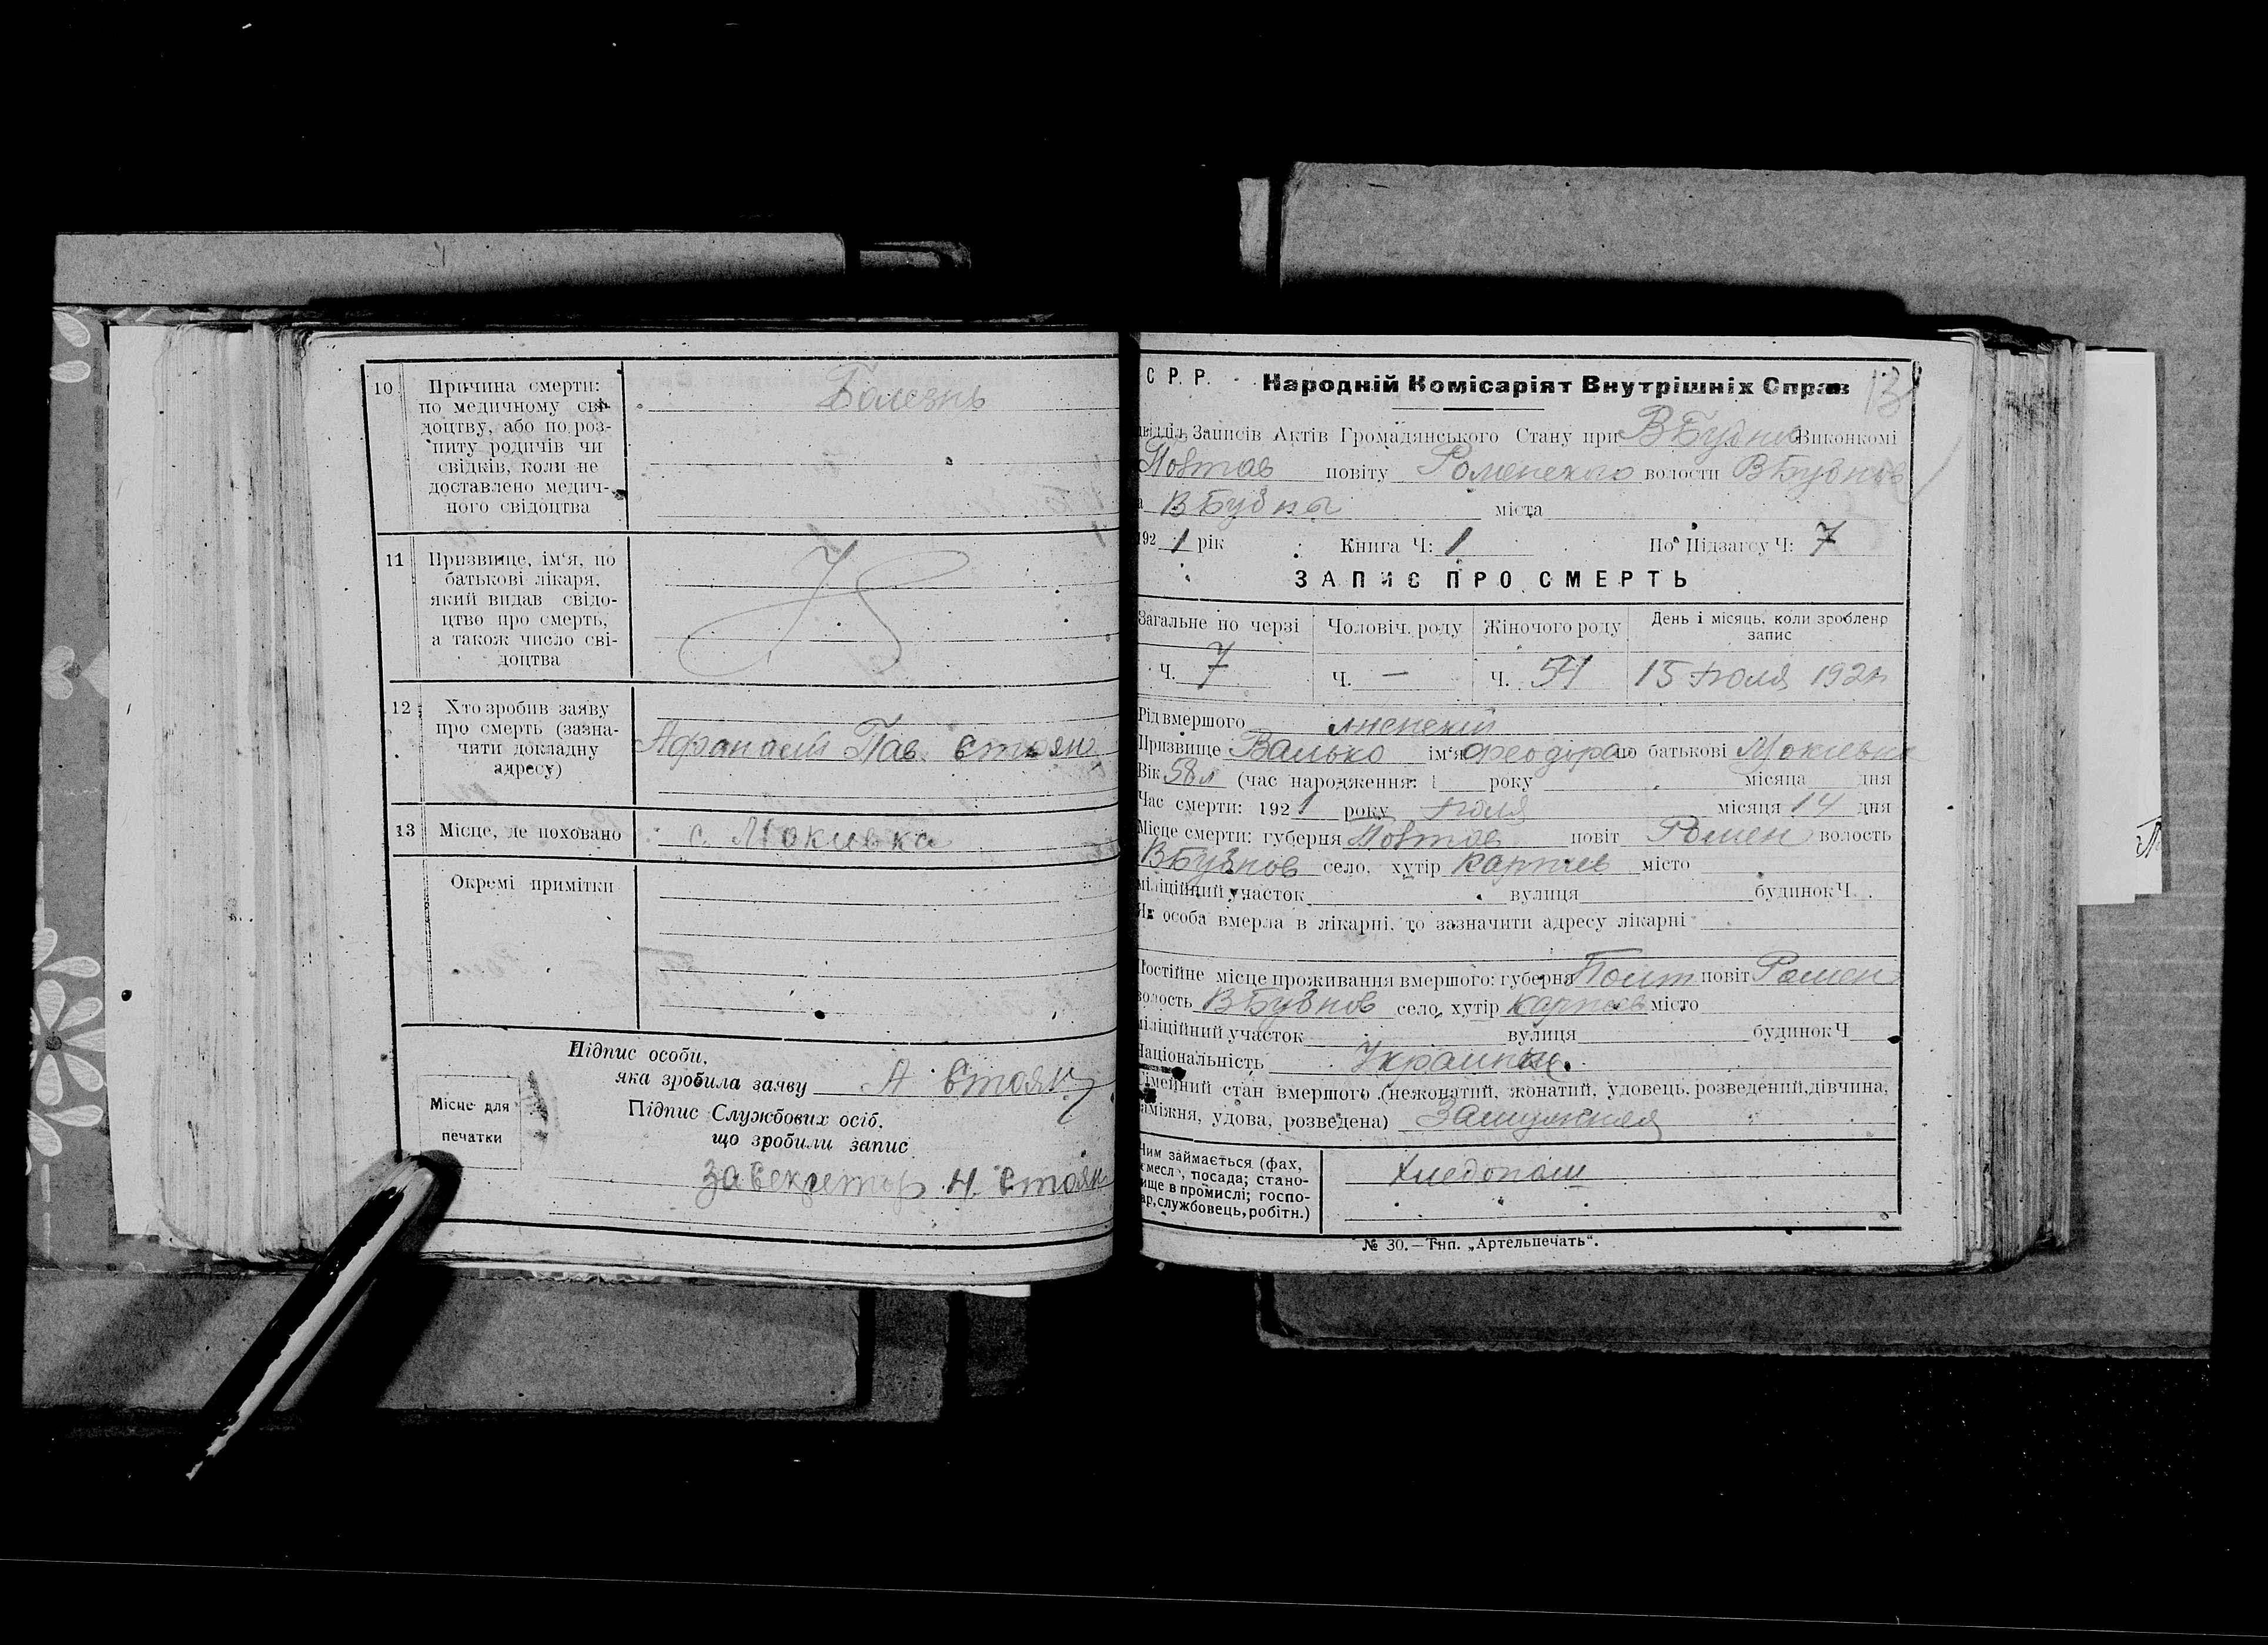 10 Причина смерти:
по медичному сві-
доцтву, або по роз-
питу родичів чи
свідків, коли не
доставлено медич-
ного свідоцтва
Болезнь
11 Призвище, ім'я, по
батькові лікаря,
який видав свідо-
цтво про смерть,
а також число сві-
доцтва
12 Хто зробив заяву
про смерть (зазна-
чити докладну
адресу)
Афанасий Пав. Стоян
13 Місце, де поховано с. Мокиевка
Окремі примітки
Підпис особи,
яка зробила заяву А Стоян
Місце для
печатки
Підпис Службових осіб,
що зробили запис
За Секретар Н. Стоян
С Р. Р. Народній Комісаріят Внутрішніх Справ 13
відділ Записів Актів Громадянського Стану при В Бубнов Виконкомі
Повтав повіту Роменского волости В Бубнов
В Бубны міста
1921 рік Книга Ч: 1 По Підзагсу Ч: 7
ЗАПИС ПРО СМЕРТЬ
Загальне по черзі Чоловіч. роду Жіночого роду День і місяць, коли зроблено
запис
Ч. 7 Ч. — Ч. 54 15 июля 192
Рід вмершого женский
Призвище Валько ім'я Феодора по батькові Мокиевна
Вік 58 л (час народження: 1 року місяца дня
Час смерти: 1921 року июля місяця 14 дня
Місце смерти: губерня Повтав повіт Ромен волость
В Бубнов село, хутір місто
міліційний участок вулиця будинок Ч.
Як особа вмерла в лікарні, то зазначити адресу лікарні
Постійне місце проживання вмершого: губерня Полт повіт Ромен
волость В Бубнов село, хутір місто
міліційний участок вулиця будинок Ч
Національність Украинка
Сімейний стан вмершого (нежонатий, жонатий, удовець, розведений, дівчина,
заміжня, удова, розведена) Замужняя
Чим займається (фах,
ремесл', посада; стано-
вище в промислі; госпо-
дар, службовець, робітн.)
Хлебопаш
№ 30.—Тип. „Артельпечать“.